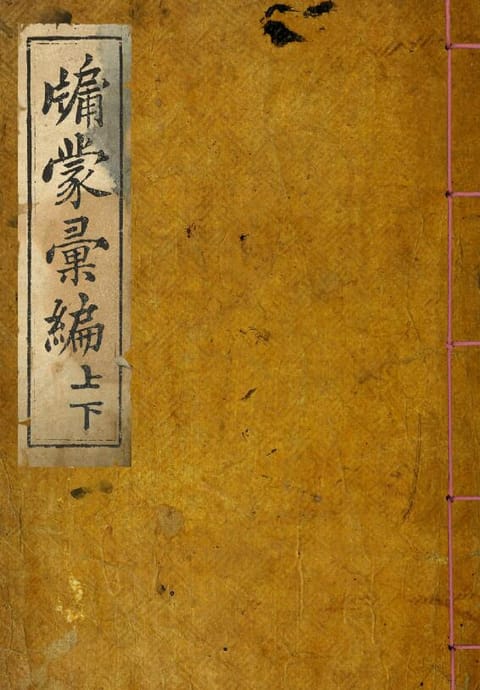 牖蒙彙編
上
下